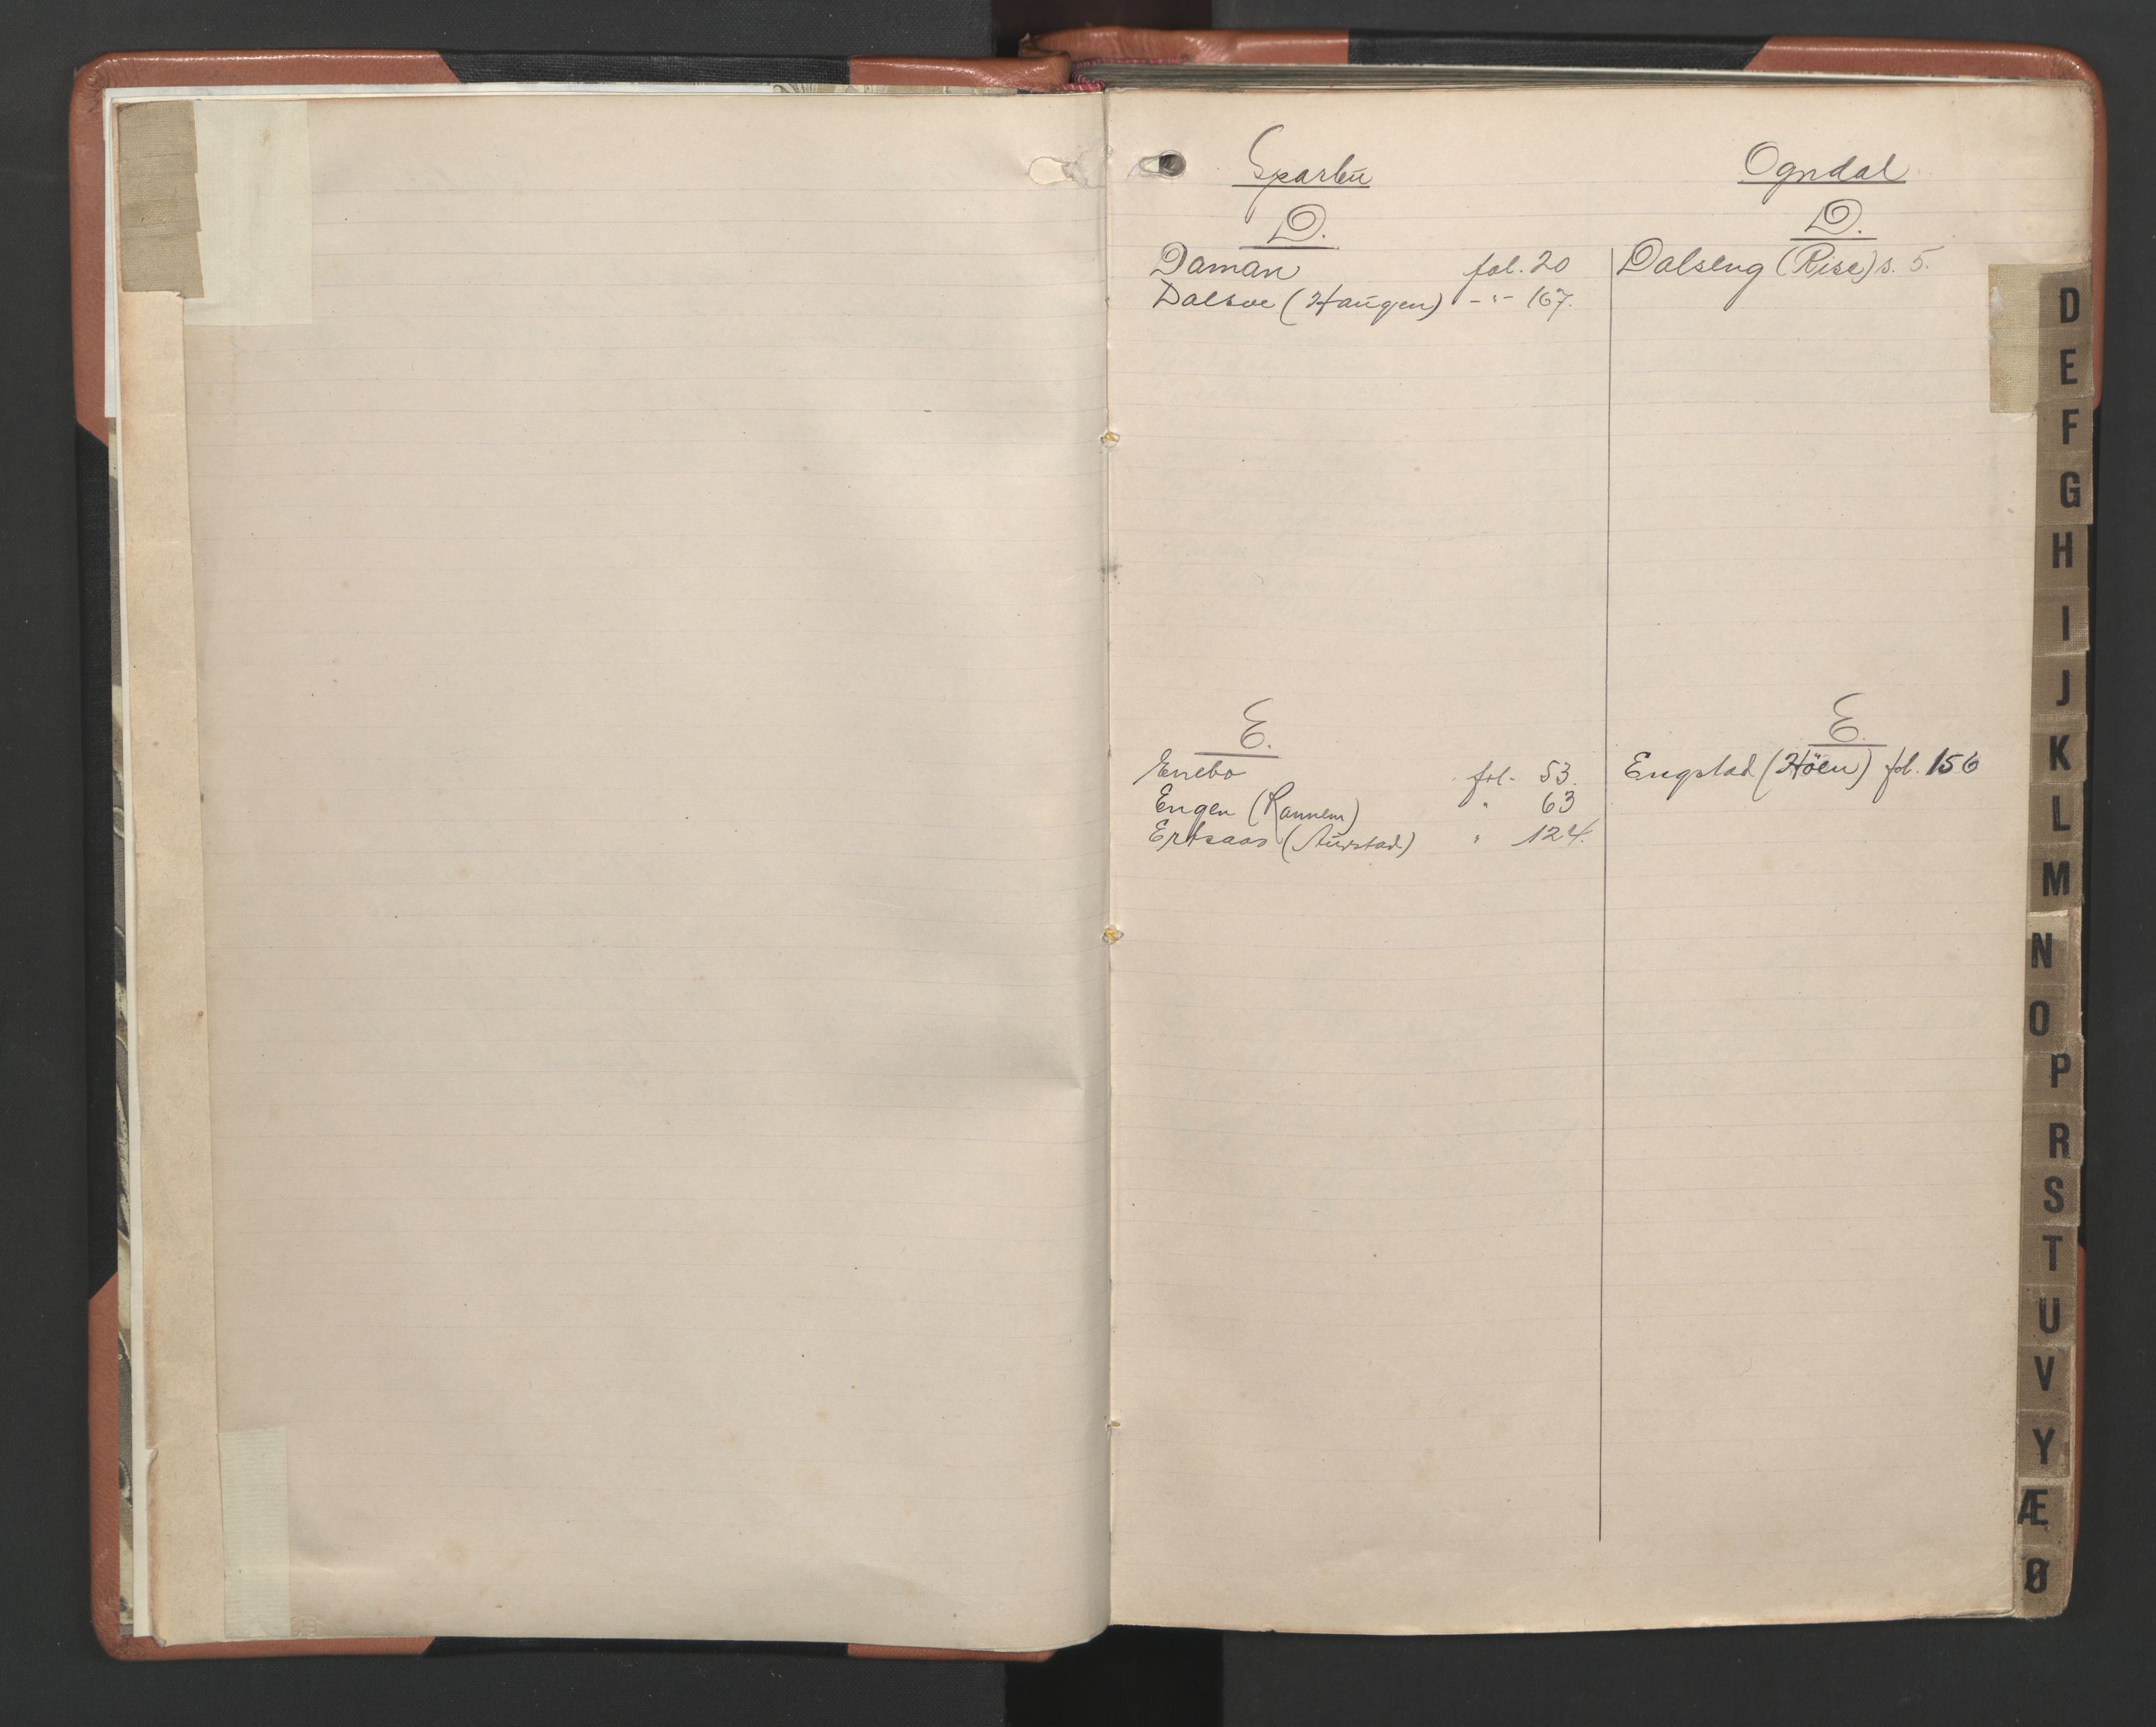 Sparbu
D.
Daman fol. 20
Dalsve (Haugen) -"- 167.
E.
Enebo fol. 53.
Engen (Rannem) " 63
Ertsaas (Aurstad) " 124.
Ogndal
D.
Dalseng (Rise) s. 5.
E.
Engstad (Höen) fol. 156
D
E
F
G
H
I
J
K
L
M
N
O
P
R
S
T
U
V
Y
Æ
Ø